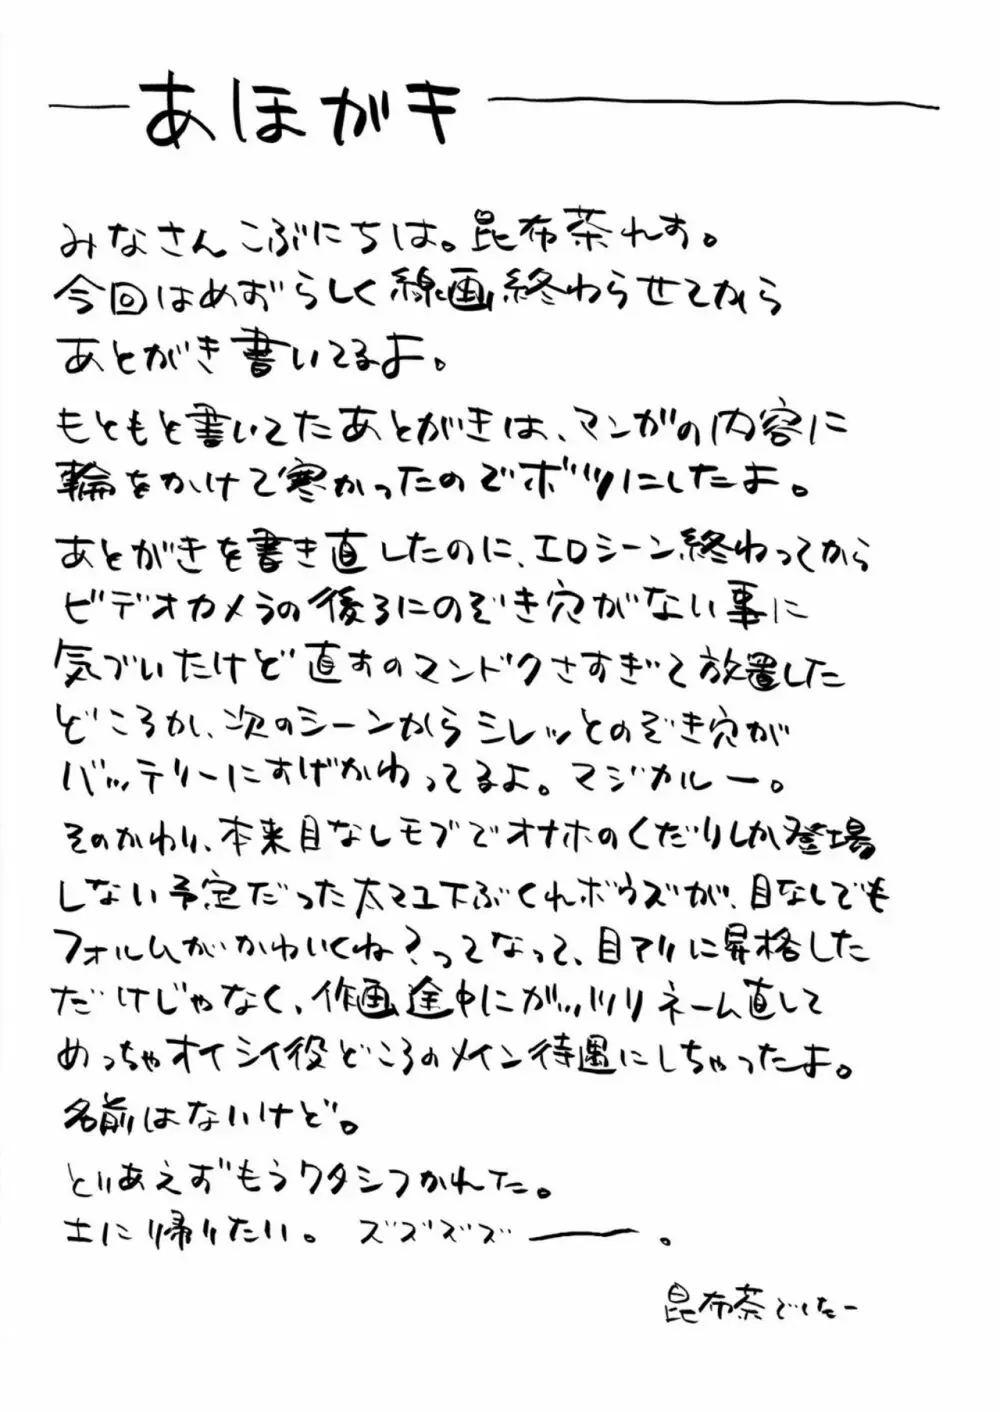 あほがキ
みなさんこぶにちは。昆布茶れす。
今回はめずらしく線画終わらせてから
あとがき書いてるよ。
もともと書いてたあとがきは、マンガの内容に
輪をかけて寒かったのでボツにしたよ。
あとがきを書き直したのに、エロシーン終わってから
ビデオカメラの後ろにのぞき穴がない事に
気づいたけど直すのマンドクさすぎて放置した
どころか、次のシーンからシレッとのぞき穴が
バッテリーにすげかわってるよ。マジカルー。
そのかわり、本来目なしモブでオナホのくだりしか登場
しない予定だった太マユ下ぶくれボウズが、目なしでも
フォルムがかわいくね?ってなって、目アリに昇格した
だけじゃなく、作画途中にガッツリネーム直して
めっちゃオイシイ役どころのメイン待遇にしちゃったよ。
名前はないけど。
とりあえずもうワタシつかれた。
土に帰りたい。 ズズズズ――。
昆布茶でしたー